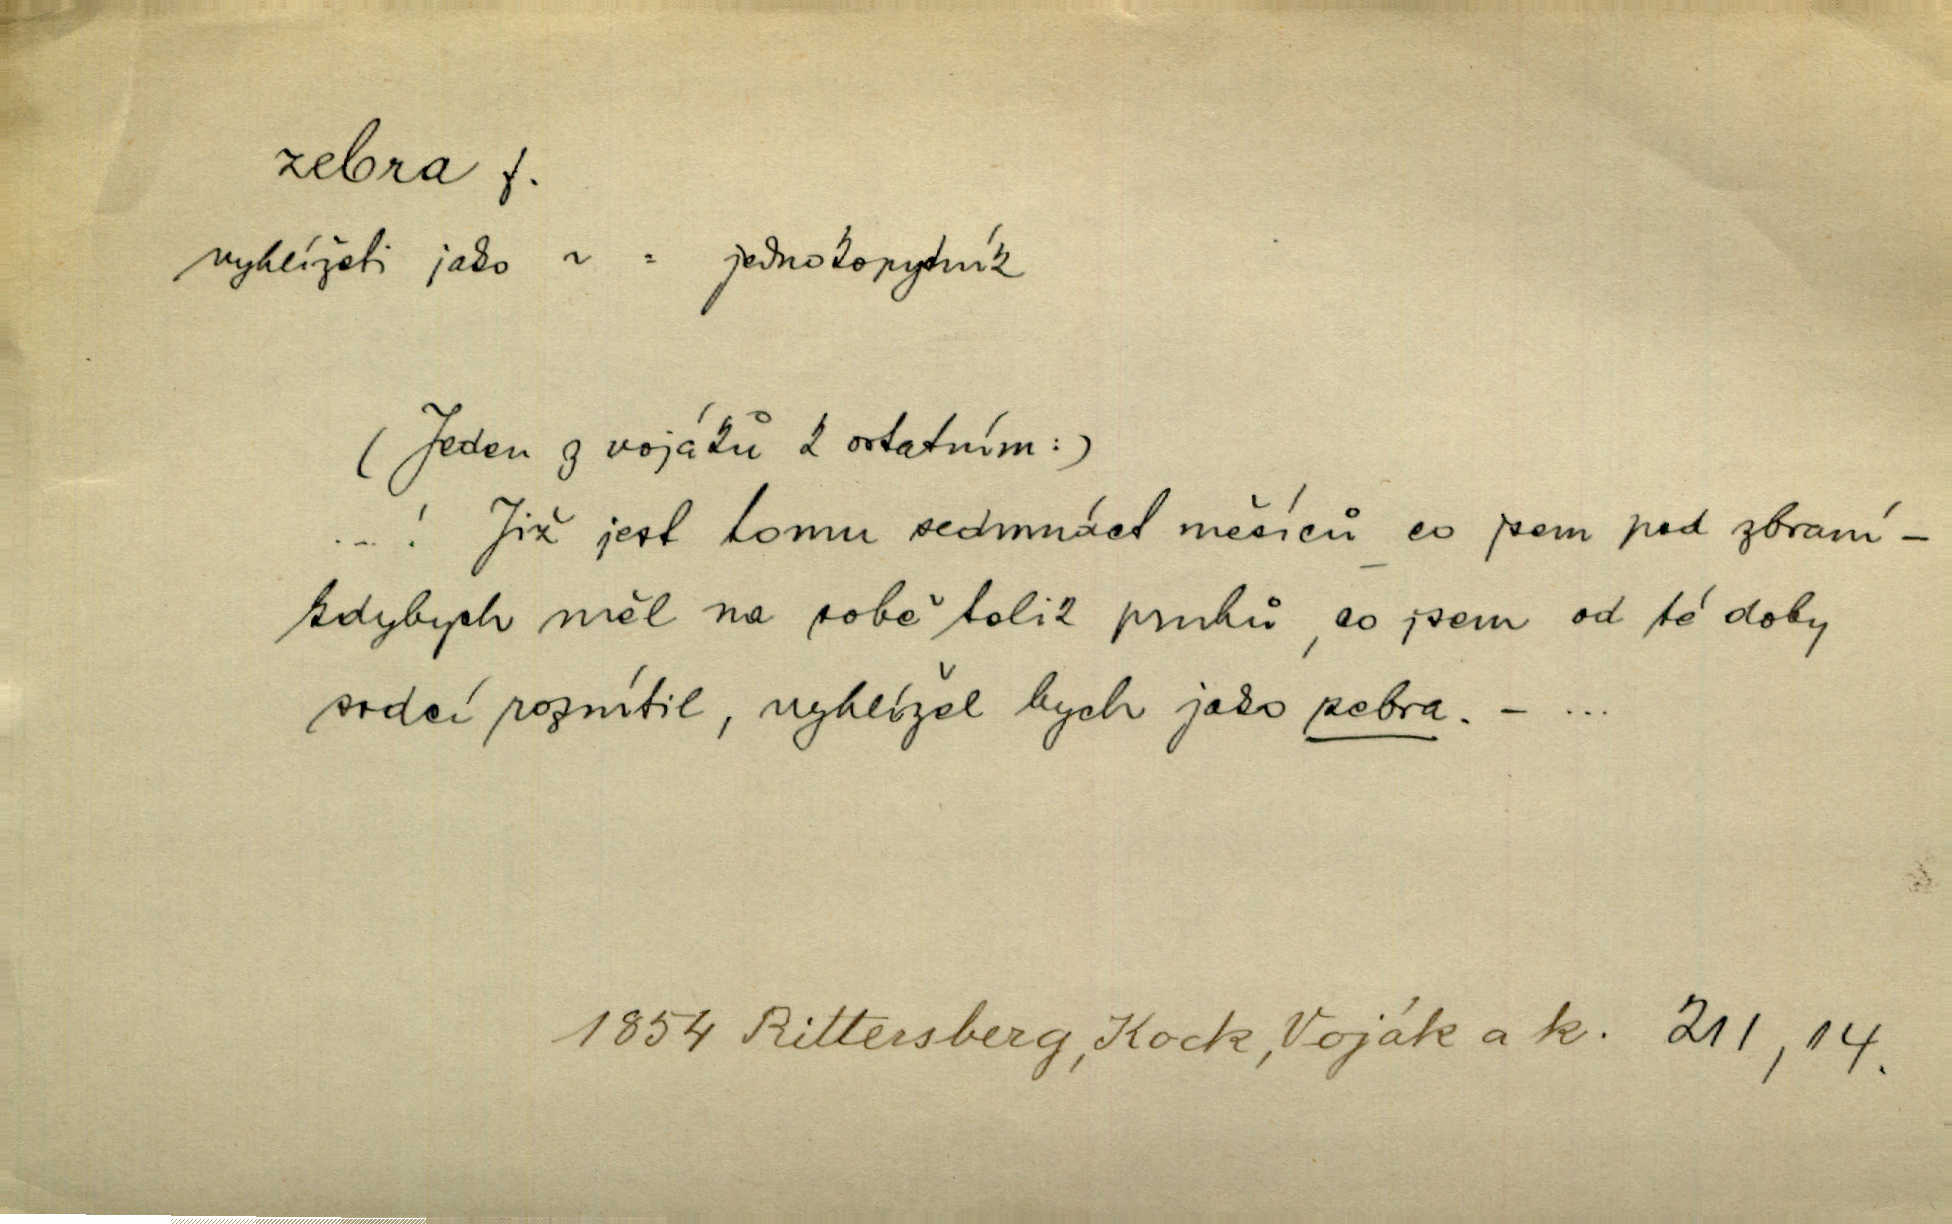 zebra f.
vyhlížeti jako ~ = jednokopytník
(Jeden z vojáků k ostatním:)
...! Již jest tomu sedmnáct měsíců co jsem pod zbraní –
kdybych měl na sobě tolik pruhů, co jsem od té doby
srdcí roznítil, vyhlížel bych jako zebra. – ...
1854 Rittersberg, Kock, Voják a k. 211, 14.